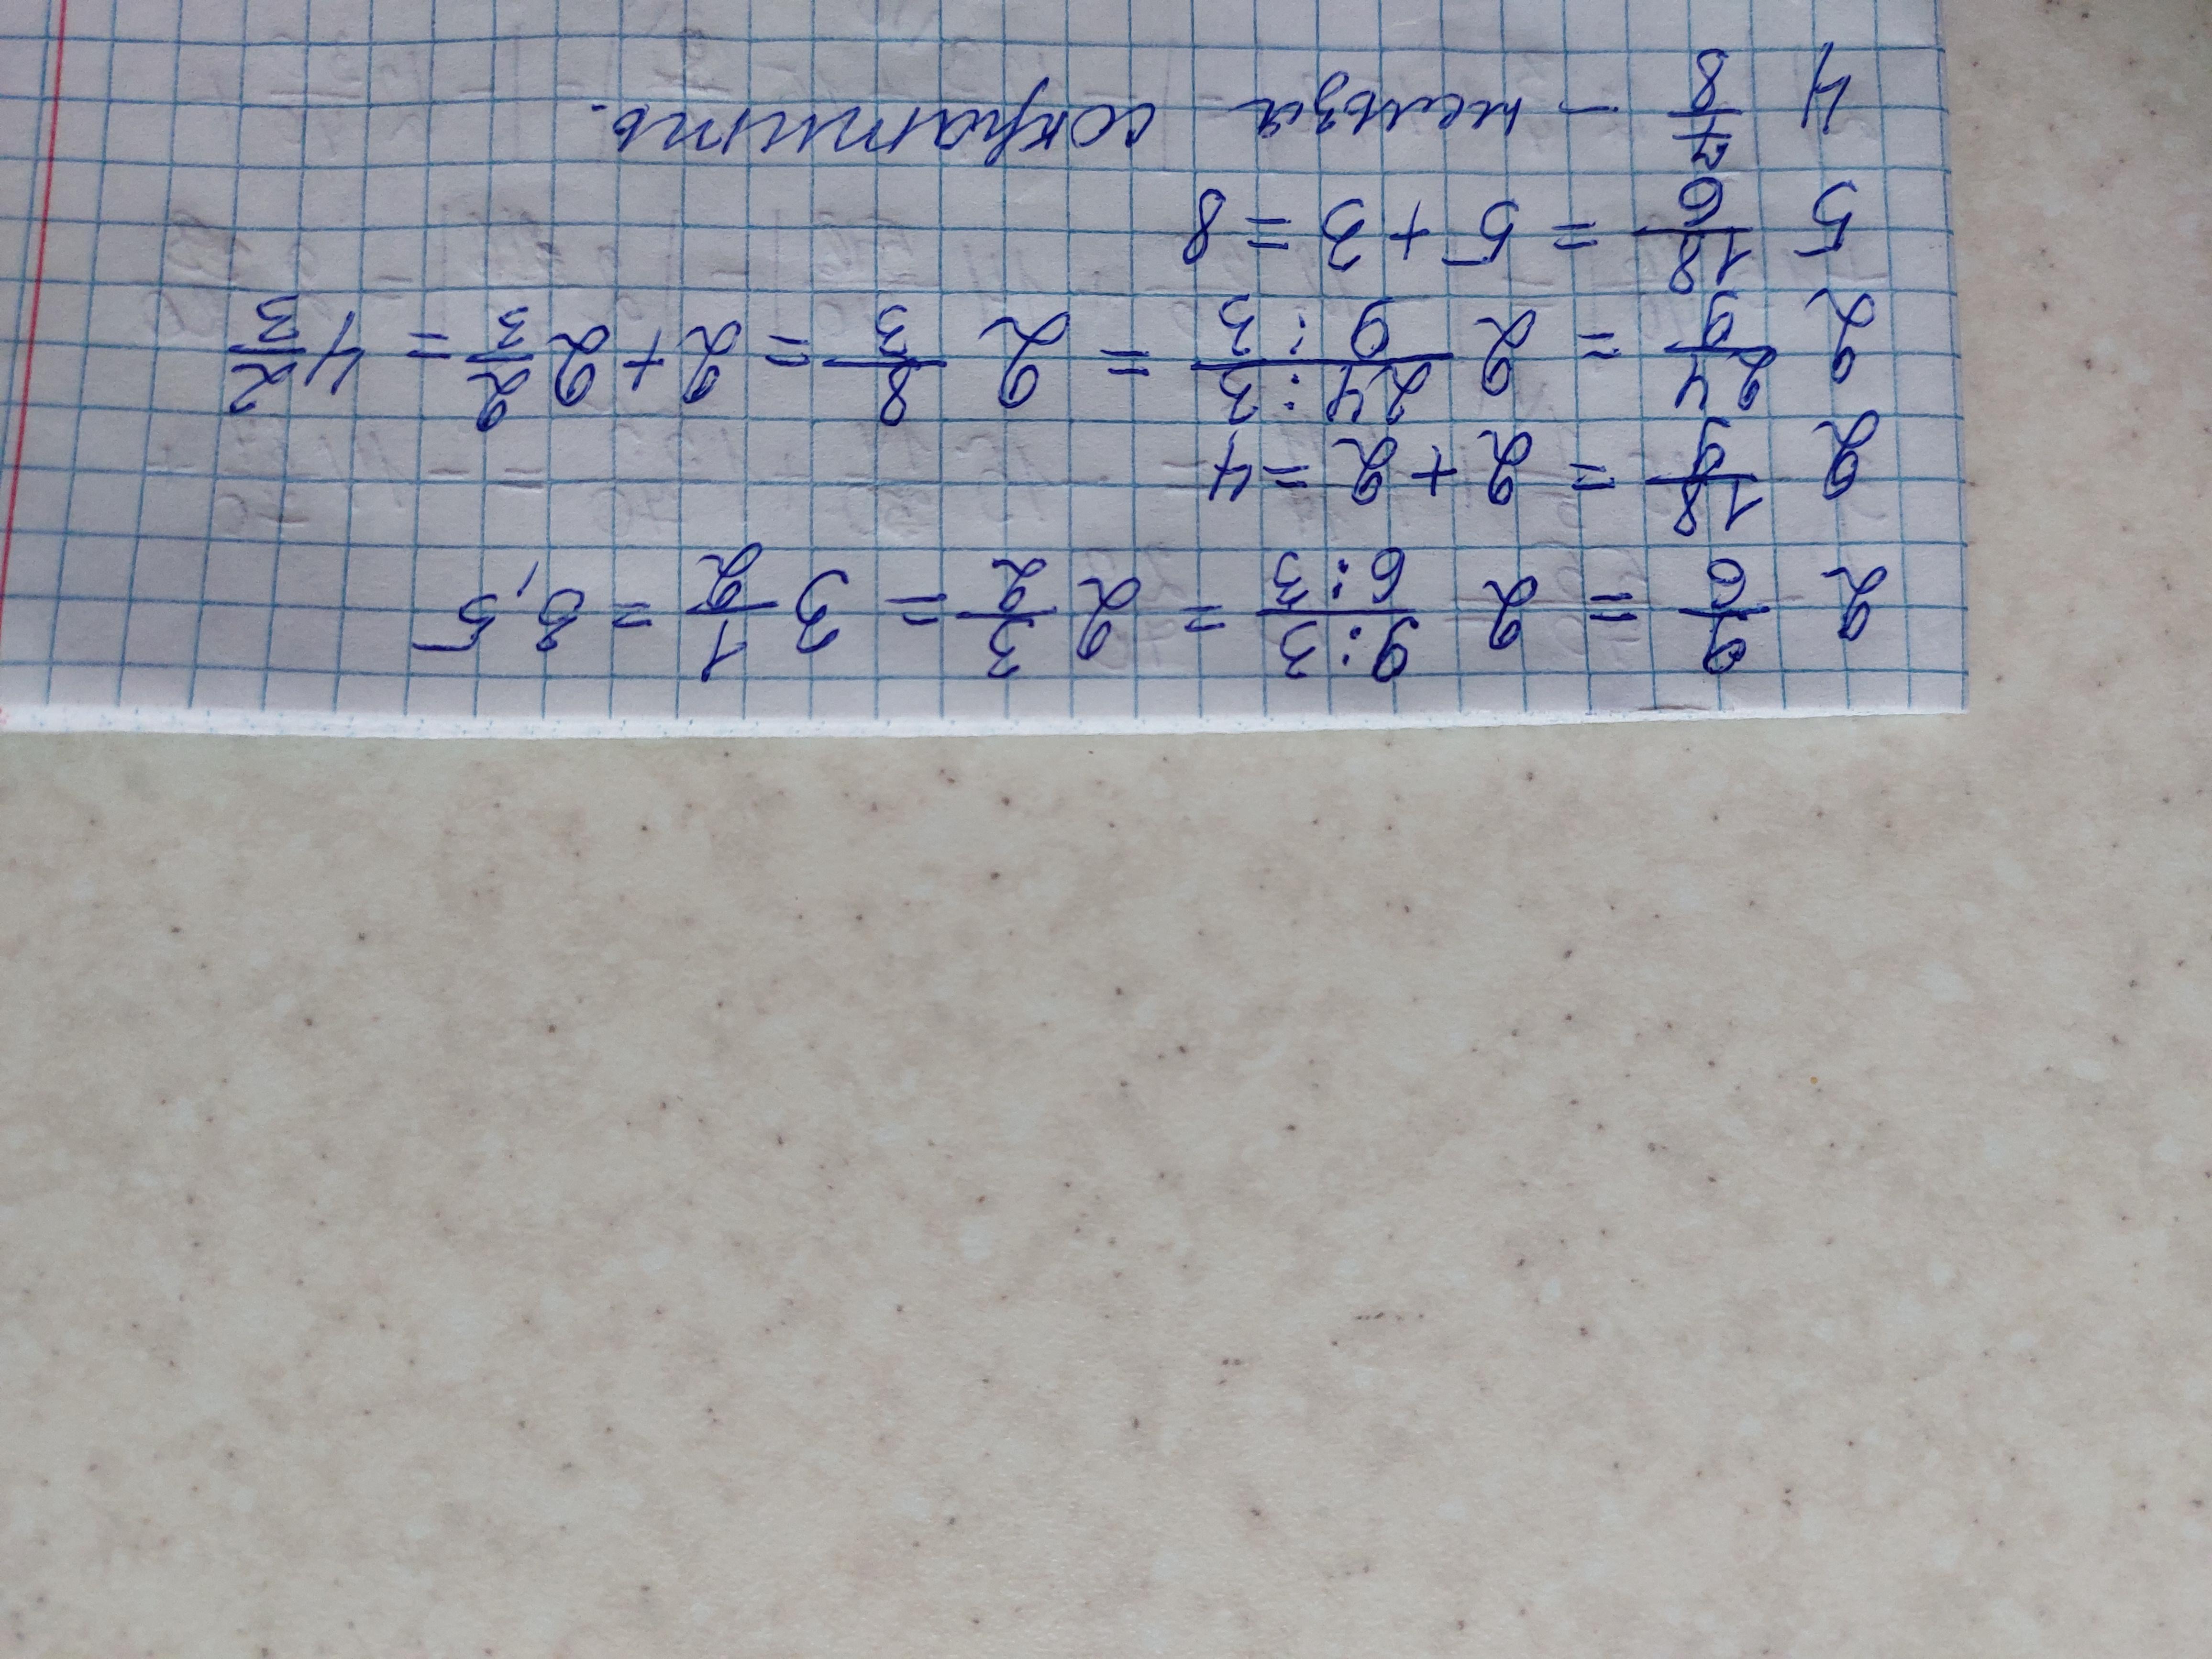 2 9/6 = 2 9:3/6:3 = 2 3/2 = 3 1/2 = 3,5
2 18/9 = 2 + 2 = 4
2 24/9 = 2 24:3/9:3 = 2 8/3 = 2 + 2 2/3 = 4 2/3
5 18/6 = 5 + 3 = 8
4 7/8 - нельзя сократить.